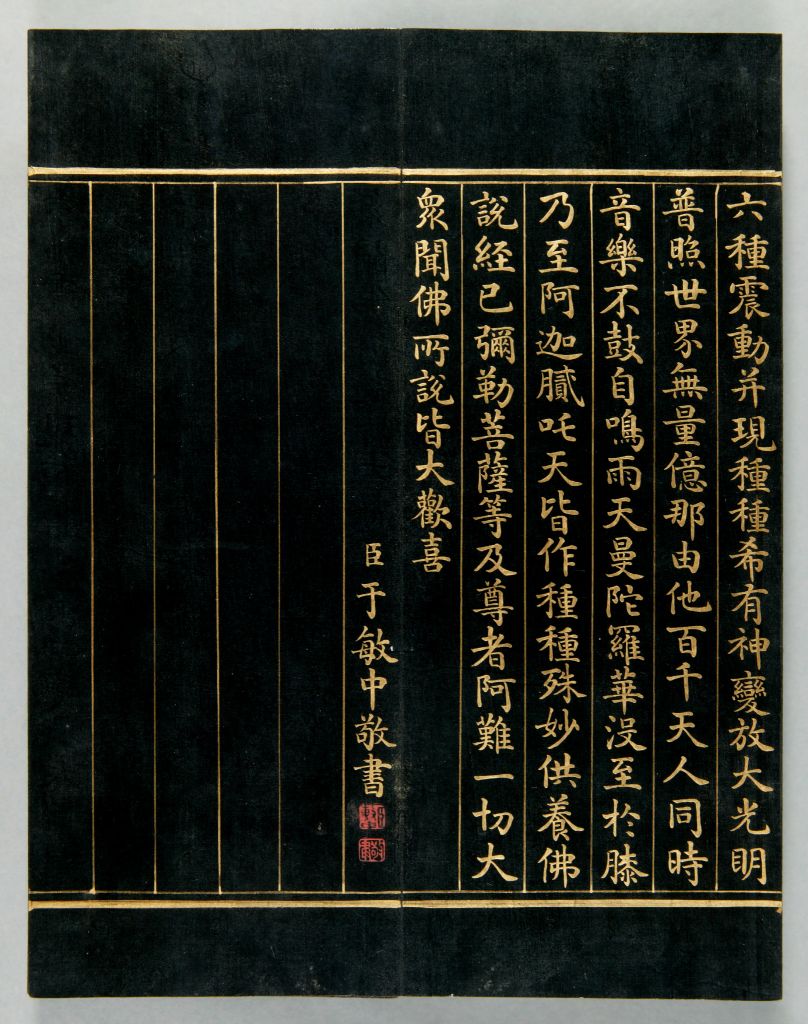 六種震動并現種種希有神變放大光明
普照世界無量億那由他百千天人同時
音樂不鼓自鳴雨天曼陀羅華沒至於膝
乃至阿迦膩吒天皆作種種殊妙供養佛
說經已彌勒菩薩等及尊者阿難一切大
眾聞佛所說皆大歡喜
臣于敏中敬書